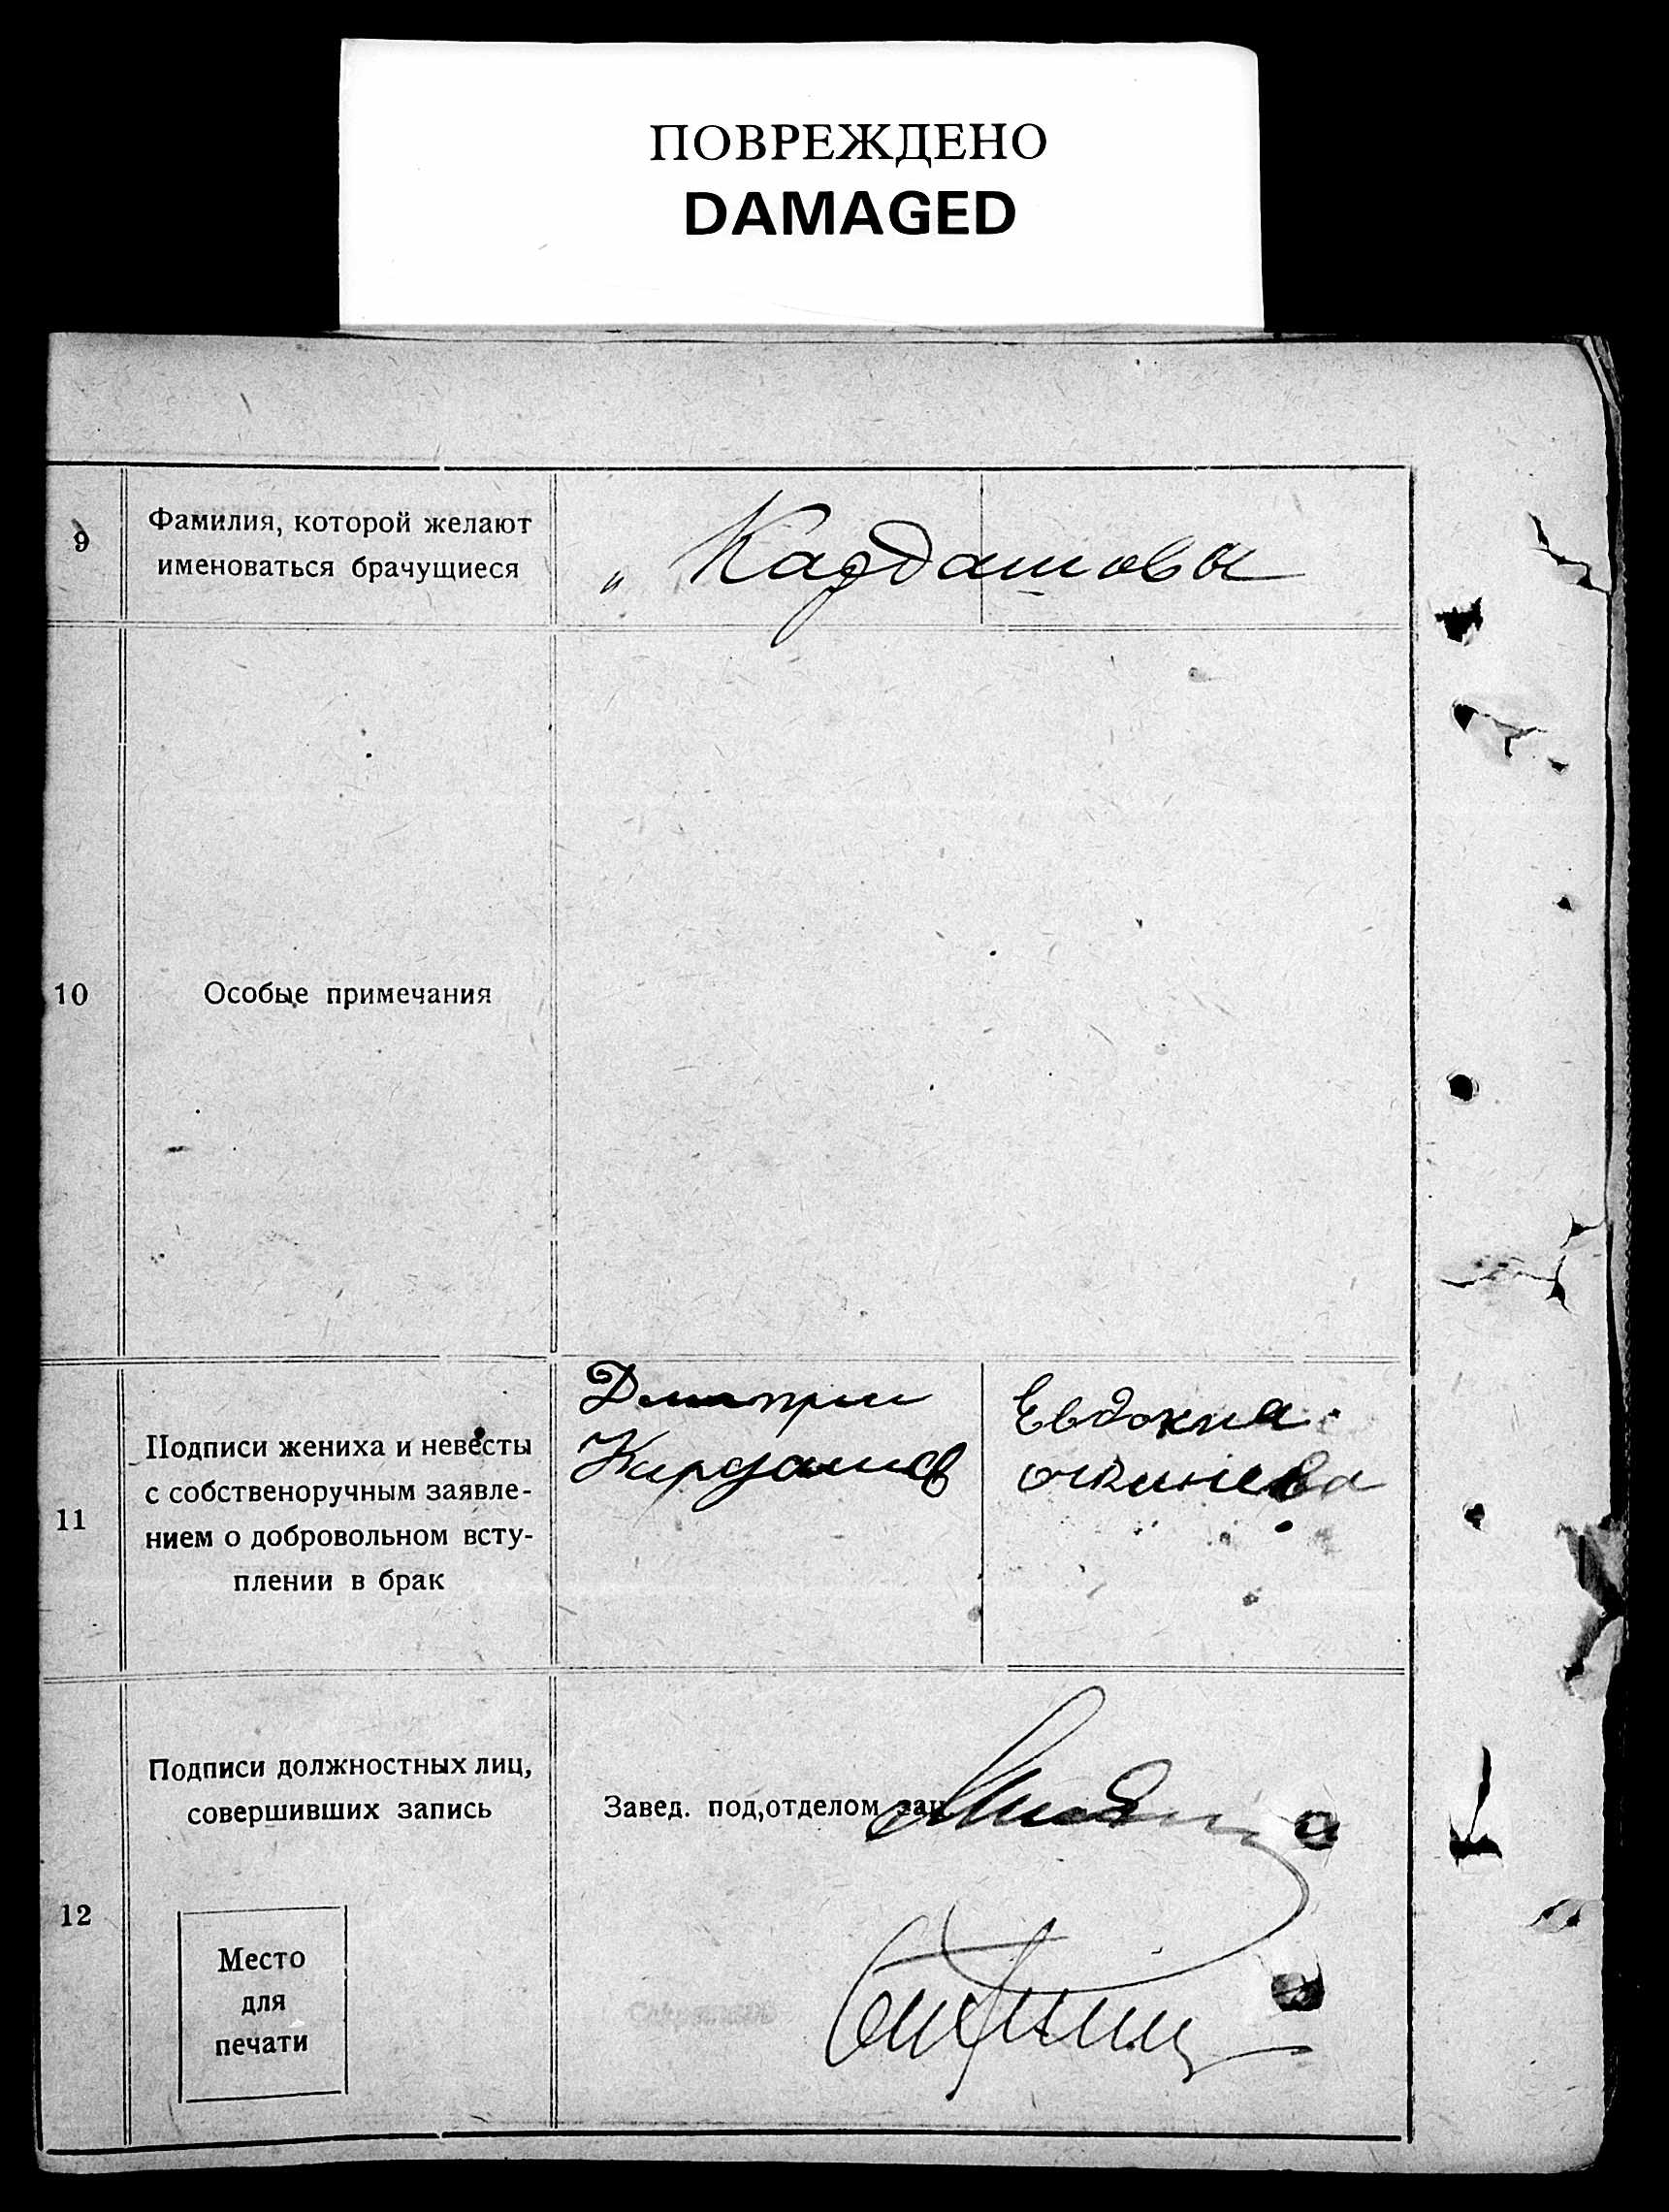 ПОВРЕЖДЕНО
DAMAGED
9
Фамилия, которой желают
именоваться брачущиеся
„ Кардашовы
10
Особые примечания
11
Подписи жениха и невесты
с собственоручным заявле-
нием о добровольном всту-
плении в брак
Дмитрии
Кардашов
Евдокиа
12
Подписи должностных лиц,
совершивших запись
Завед. под,отделом зап.
Место
для
печати